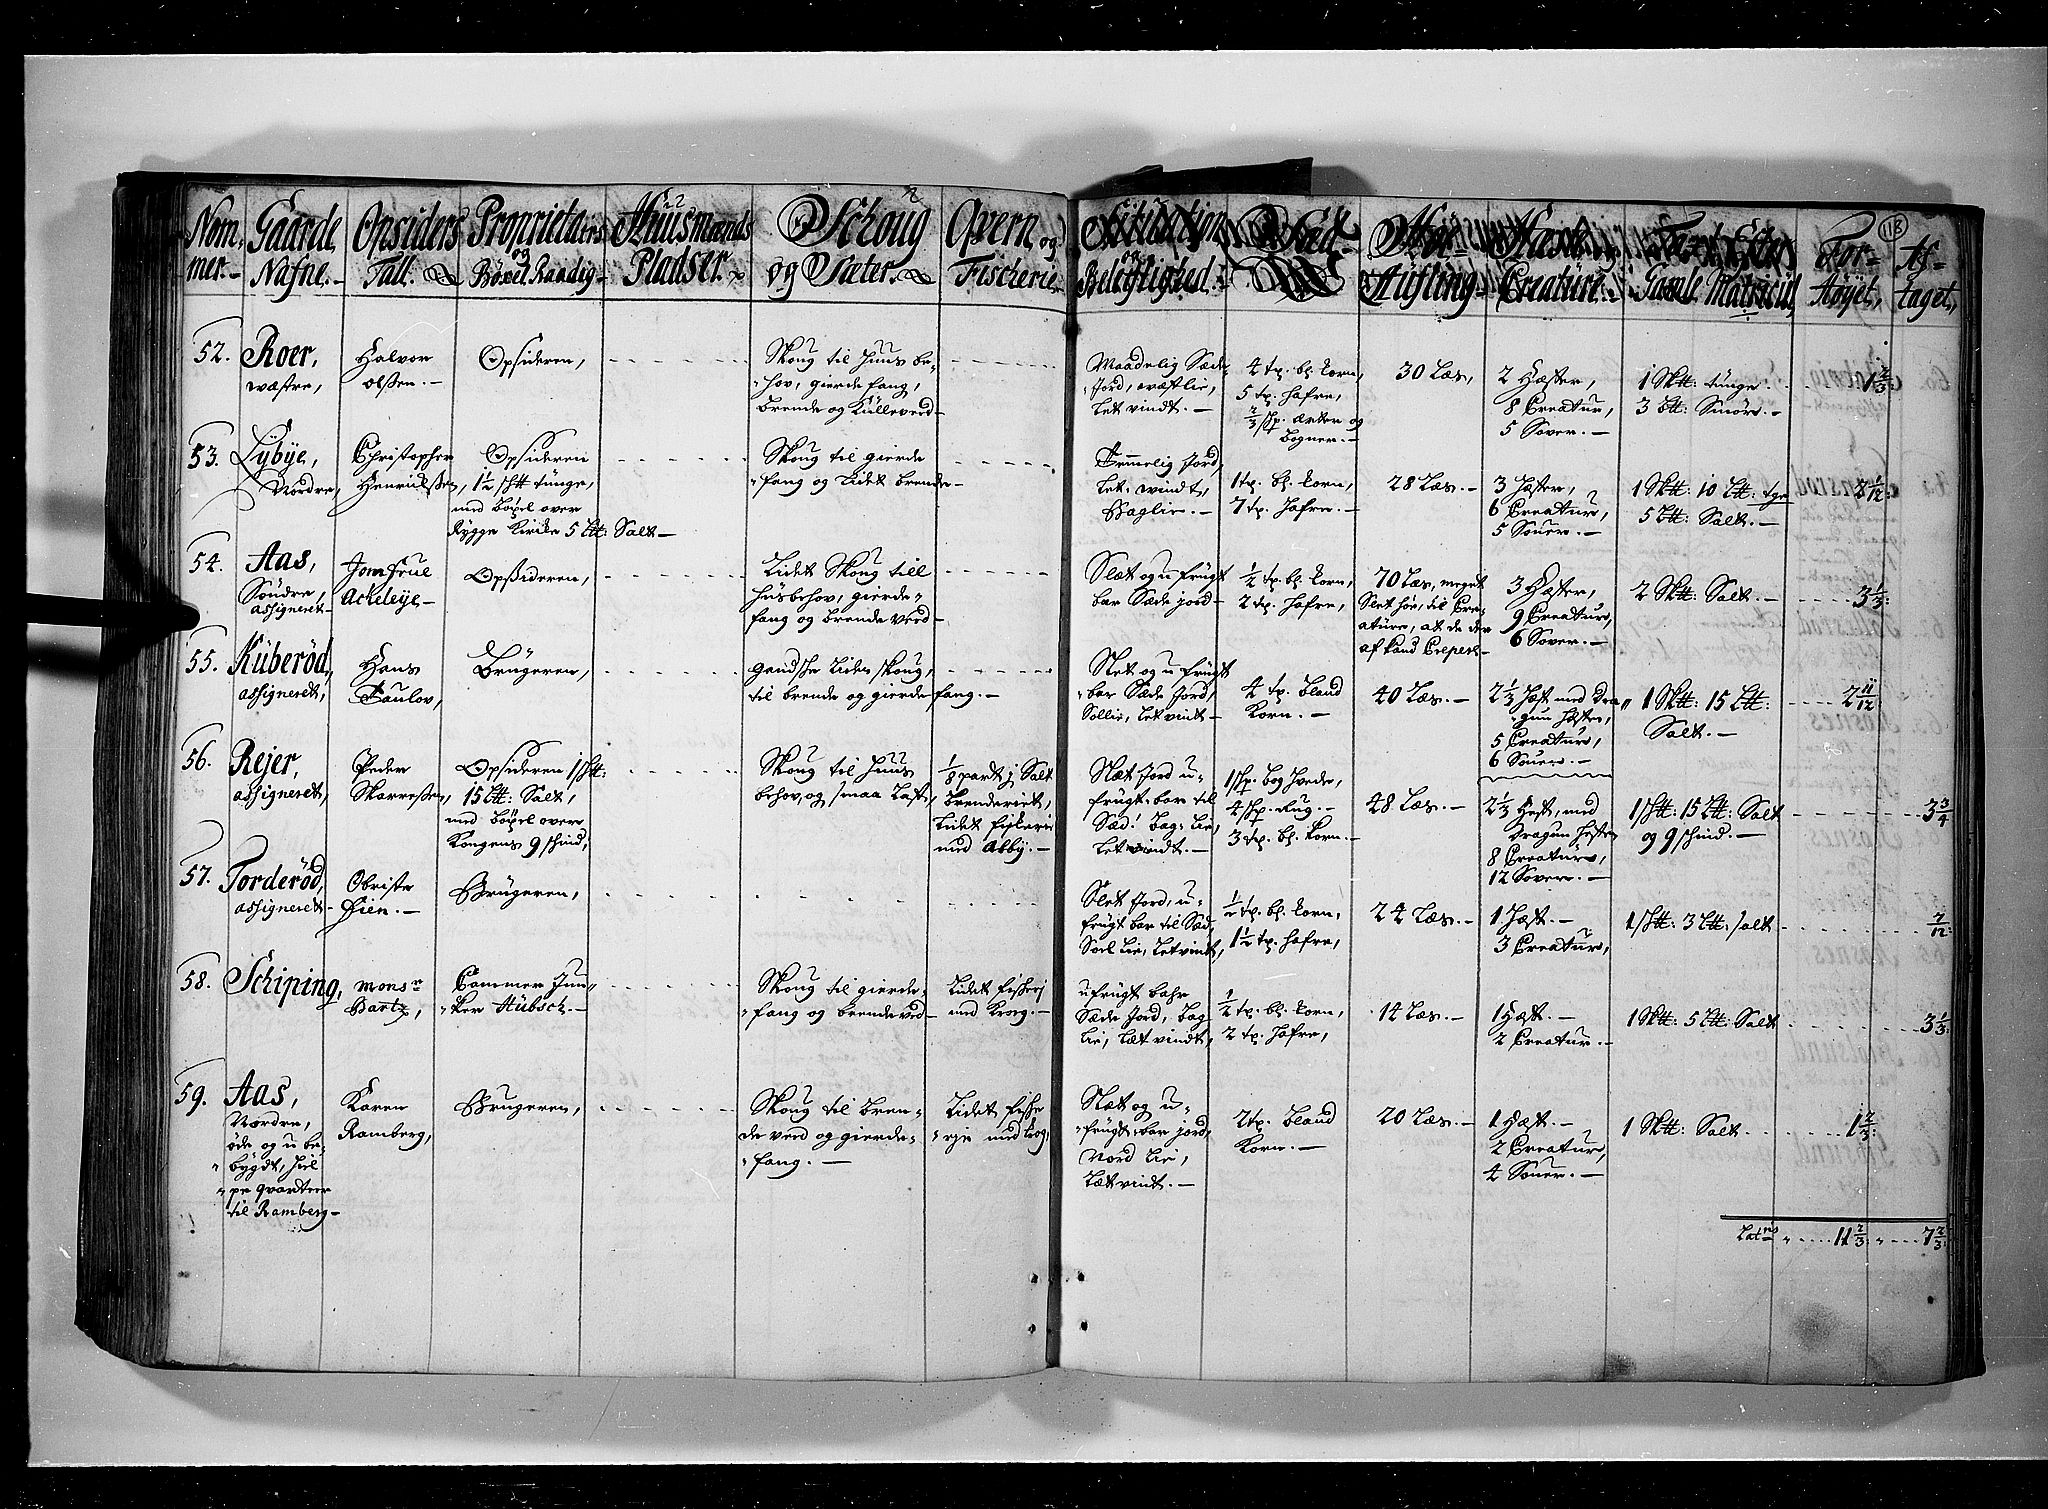 118
Nom-mer.- Gaarde Nafne.- Opsiders Tall. Proprietairs og Böxel Raadig- Huusmænds Pladser. Schoug og Sæter. Qvern og Fischerie. Situation og Beleiflighed. Sæd Höe Aufling Hæste Creature Gamle Matricul Forhöyet, Aftaget,
52. Roer,
wæstre,
Halvor
olssen.-
Opsideren,
Skoug til Huus be-
hov, gierde fang,
brende og Kulleverd-
Maadelig Sæde
Jord, væstlie,
Let vindt.-
4 tp. bl. korn,
5 tp. hafre,
2/3 skp. ærter og
bogner.-
30 Læs,
2 Hæster,
8 Creatur,
5 Sover.-
1 Sktt: tunge
3 Ltt: Smör.-
1 2/3
53. Lybye,
Nordre,
Christopher
Henrichssen,
Opsideren
1 1/2 sktt tunge,
med Böxel over
Rygge Kirike 5 Ltt: Salt-
Skoug til gierde
fang og Lidet brende-
Temmelig Jord,
Let vindt,
Baglie.-
1 tp. bl. korn,
7 tp. Hafre.-
28 Læs.-
3 Hæster,
6 Creature,
5 Souer.-
1 Sktt: 10 Ltt: tge
5 Ltt: Salt.-
54. Aas,
Söndre,
assigneret-
Jomfrue
Acheleije-
Opsideren,
Lidet Skoug till
husbehov, gierde-
fang og brende verd-
Slæt og ufrugt
bar Sæde jord-
1/2 tp. bl. korn,
2 tp. Hafre,
70 Læs, meget
Slet höe, til Cre-
ature, at de der
af kand Crepere-
3 Hæster,
9 Creature,
6 Sover.-
2 Sktt: Salt.-
3 1/3:
55. Kuberöd,
assigneret,
Hans
Paulov,
Brugeren,
gandske Liden skoug,
til brende og gierde fang.-
Slet og ufrugt
bar Sæde Jord,
Sollie, Let vindt-
4 tp. bland
Korn.-
40 Læs.-
2 1/3 Hæst med Dra-
gun Hæster,
5 Creature,
6 Souer.-
1 Sktt: 15 Ltt:
Salt.-
2 11/12
56. Rejer,
assigneret,
Peder
Skarressen,
Opsideren 1 sktt:
15 Ltt: Salt,
med böxel over
Kongens 9 skind,
Skoug til Huus
behov, og smaa Last,
1/8 part j Salt
brenderiet,
Lidet fiskerie
med Abby.-
Slæt Jord u-
frugt-bar til
Sæd! Bag-Lie,
Let vindt.-
1 skp. bog hvede,
4 skp. Rug.-
3 tp. bl. korn.-
48 Læs.-
2 1/3 Hest, med
Dragun Hesten
8 Creature,
12 Sover.-
1 sktt: 15 Ltt: Salt
og 9 skind.-
3 3/4
57. Torderöd,
assigneret-
Obriste
Hien.-
Brugeren,
Slet Jord, u-
frugt bar til Sæd,
Soel Lie, Let vindt,
1/2 tp. bl. korn,
1 1/2 tp. hafre,
24 Læs.-
1 Hæst.-
3 Creature,
1 sktt: 3 Ltt: salt
7/12:
58. Schiping,
monsr
Bartz,
Cammer Jun-
ker Hübsch.-
Skoug til gierde-
fang og brende ved-
Lidet fisscherj
med Krog.-
ufrugt bahr
Sæde Jord, Bag
Lie, Læt vindt,
1/2 tp. bl. korn,
2 tp. Hafre,
14 Læs.-
1 Hæst.-
2 Creatur.-
1 Sktt: 5 Ltt: Salt
3 1/3:
59. Aas,
Nordre,
öde og u be-
bygdt, Hiel-
pe qvarteer
til Ramberg-
Karen
Ramberg,
Brugeren,
Skoug til bren-
de verd og gierde-
fang.-
Lidet fisshe
rje med krog,
Slæt og u-
frugt-bar jord,
Nord Lie,
Læt vindt.-
2 tp. bland
Korn.-
20 Læs.-
1 Hæst.-
2 Creature,
4 Souer.-
1 Sktt: Salt
1 2/3:
11 2/3 7 2/3: